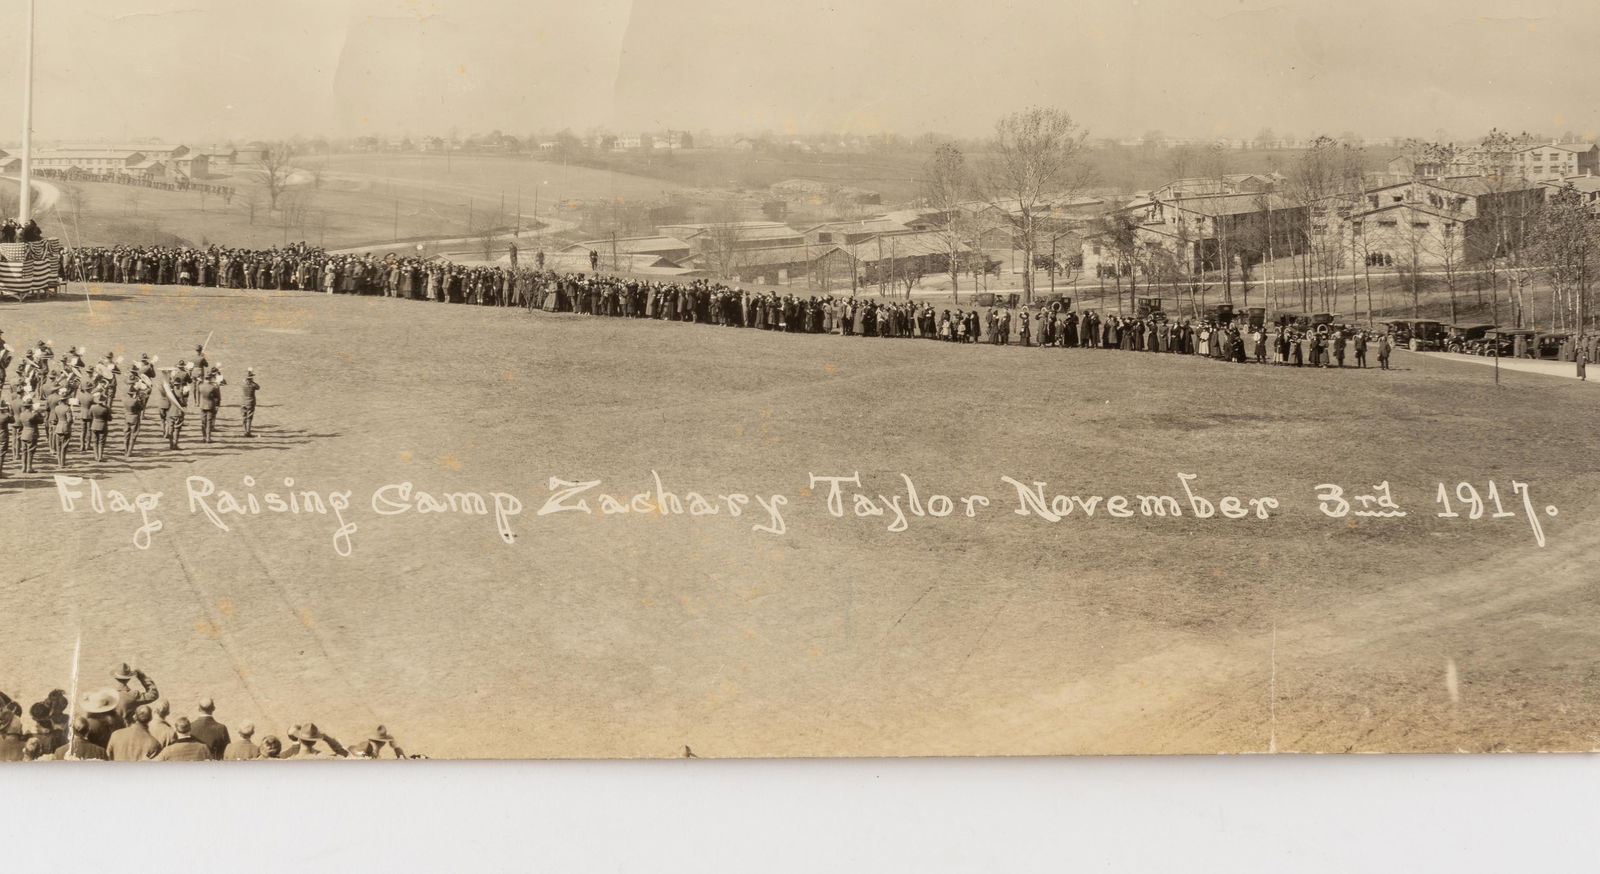 Flag Raising Camp Zachary Taylor November 3rd 1917.